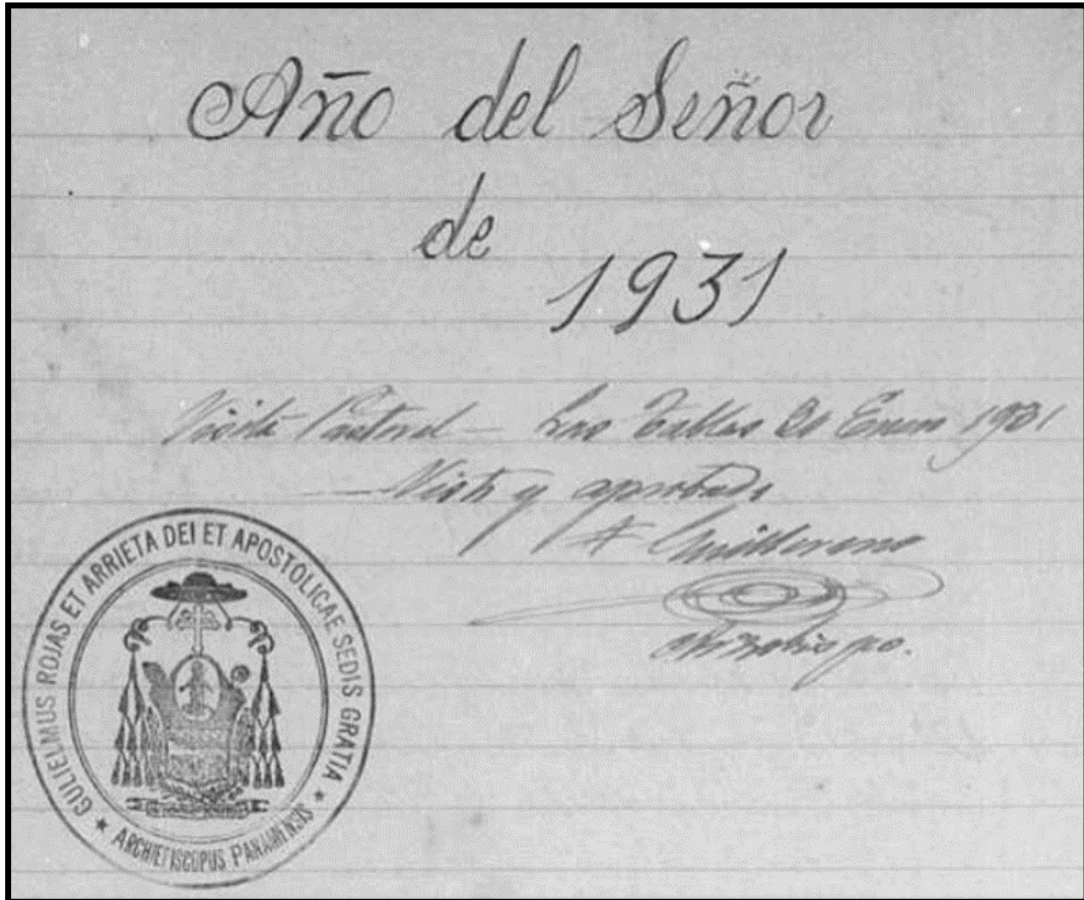 Año del Señor
de
1931
Visita Pastoral — Las Tablas 20 Enero 1931
— Visto y aprobado
+ Guillermo
Arzobispo.
GUILIELMUS ROJAS ET ARRIETA DEI ET APOSTOLICAE SEDIS GRATIA
* ARCHIEPISCOPUS PANAMENSIS *